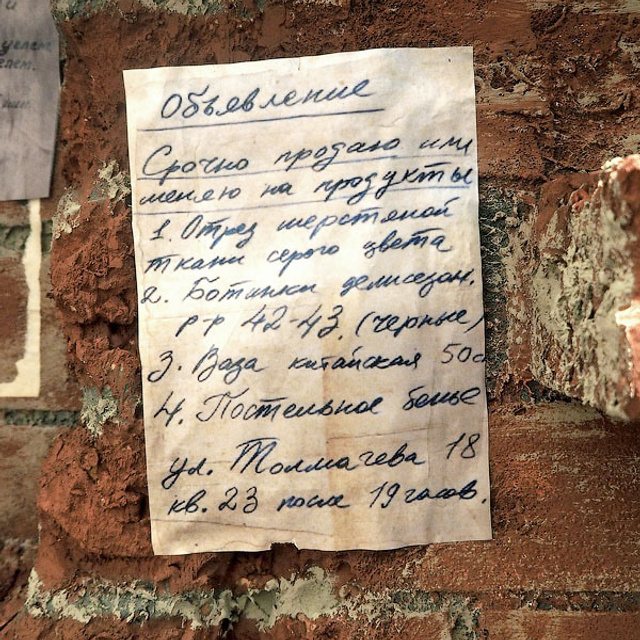 Объявление
Срочно продаю или
меняю на продукты
1. Отрез шерстяной
ткани серого цвета
2. Ботинки демисезон.
р-р 42-43. (черные)
3. Ваза китайская 50с
4. Постельное белье
ул. Толмачева 18
кв. 23 после 19 часов.